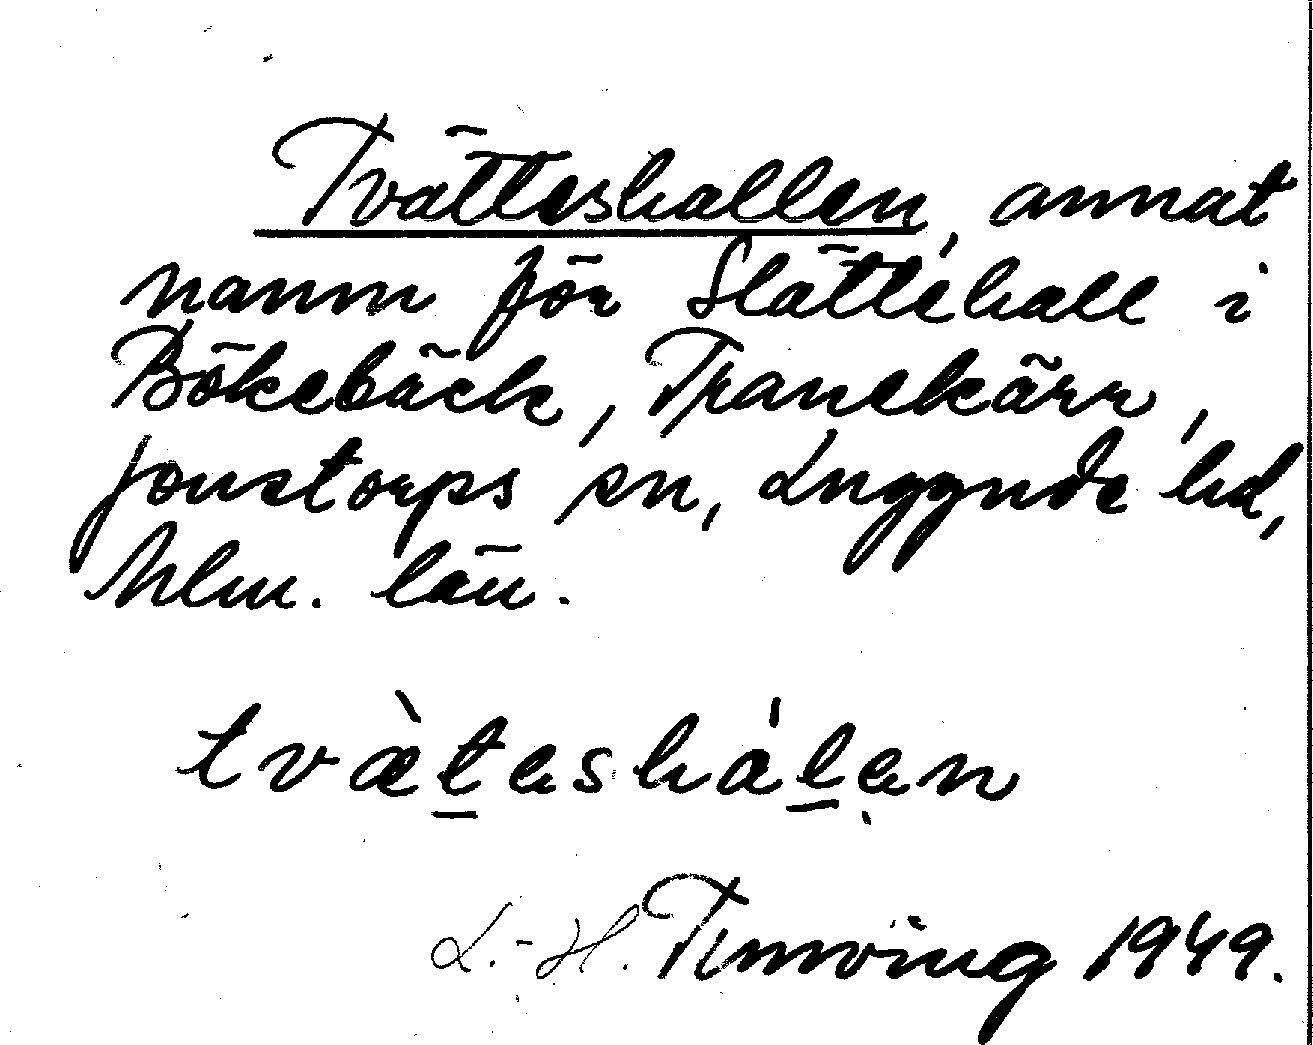 Tvätteshallen, annat
namn för Slättehall i
Bökebäck, Tranekärr,
Jonstorps sn, Luggude hd,
Mlm. län.
tvæ̀t̲eshál̲ẹn
L.-H. 1949.